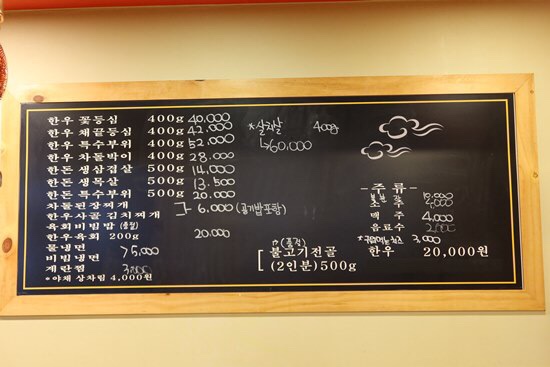 한우 꽃등심 400g 40,000
한우 채끝등심 400g 42,000
한우 특수부위 400g 52,000
한우 차돌박이 400g 28,000
한돈 생삼겹살 500g 14,000
한돈 생목살 500g 13,500
한돈 특수부위 500g 20,000
차돌된장찌개
한우사골 김치찌개 6,000 (공기밥포함)
육회비빔밥 (품절)
한우육회 200g 20,000
물냉면
비빔냉면 >5,000
계란찜 3,000
*야채 상차림 4,000원
*살치살 400g
↳60,000
☆(품절)
불고기전골
(2인분)500g
-주류-
소주 4,000
맥주 4,000
음료수 2,000
3,000
한우 20,000원